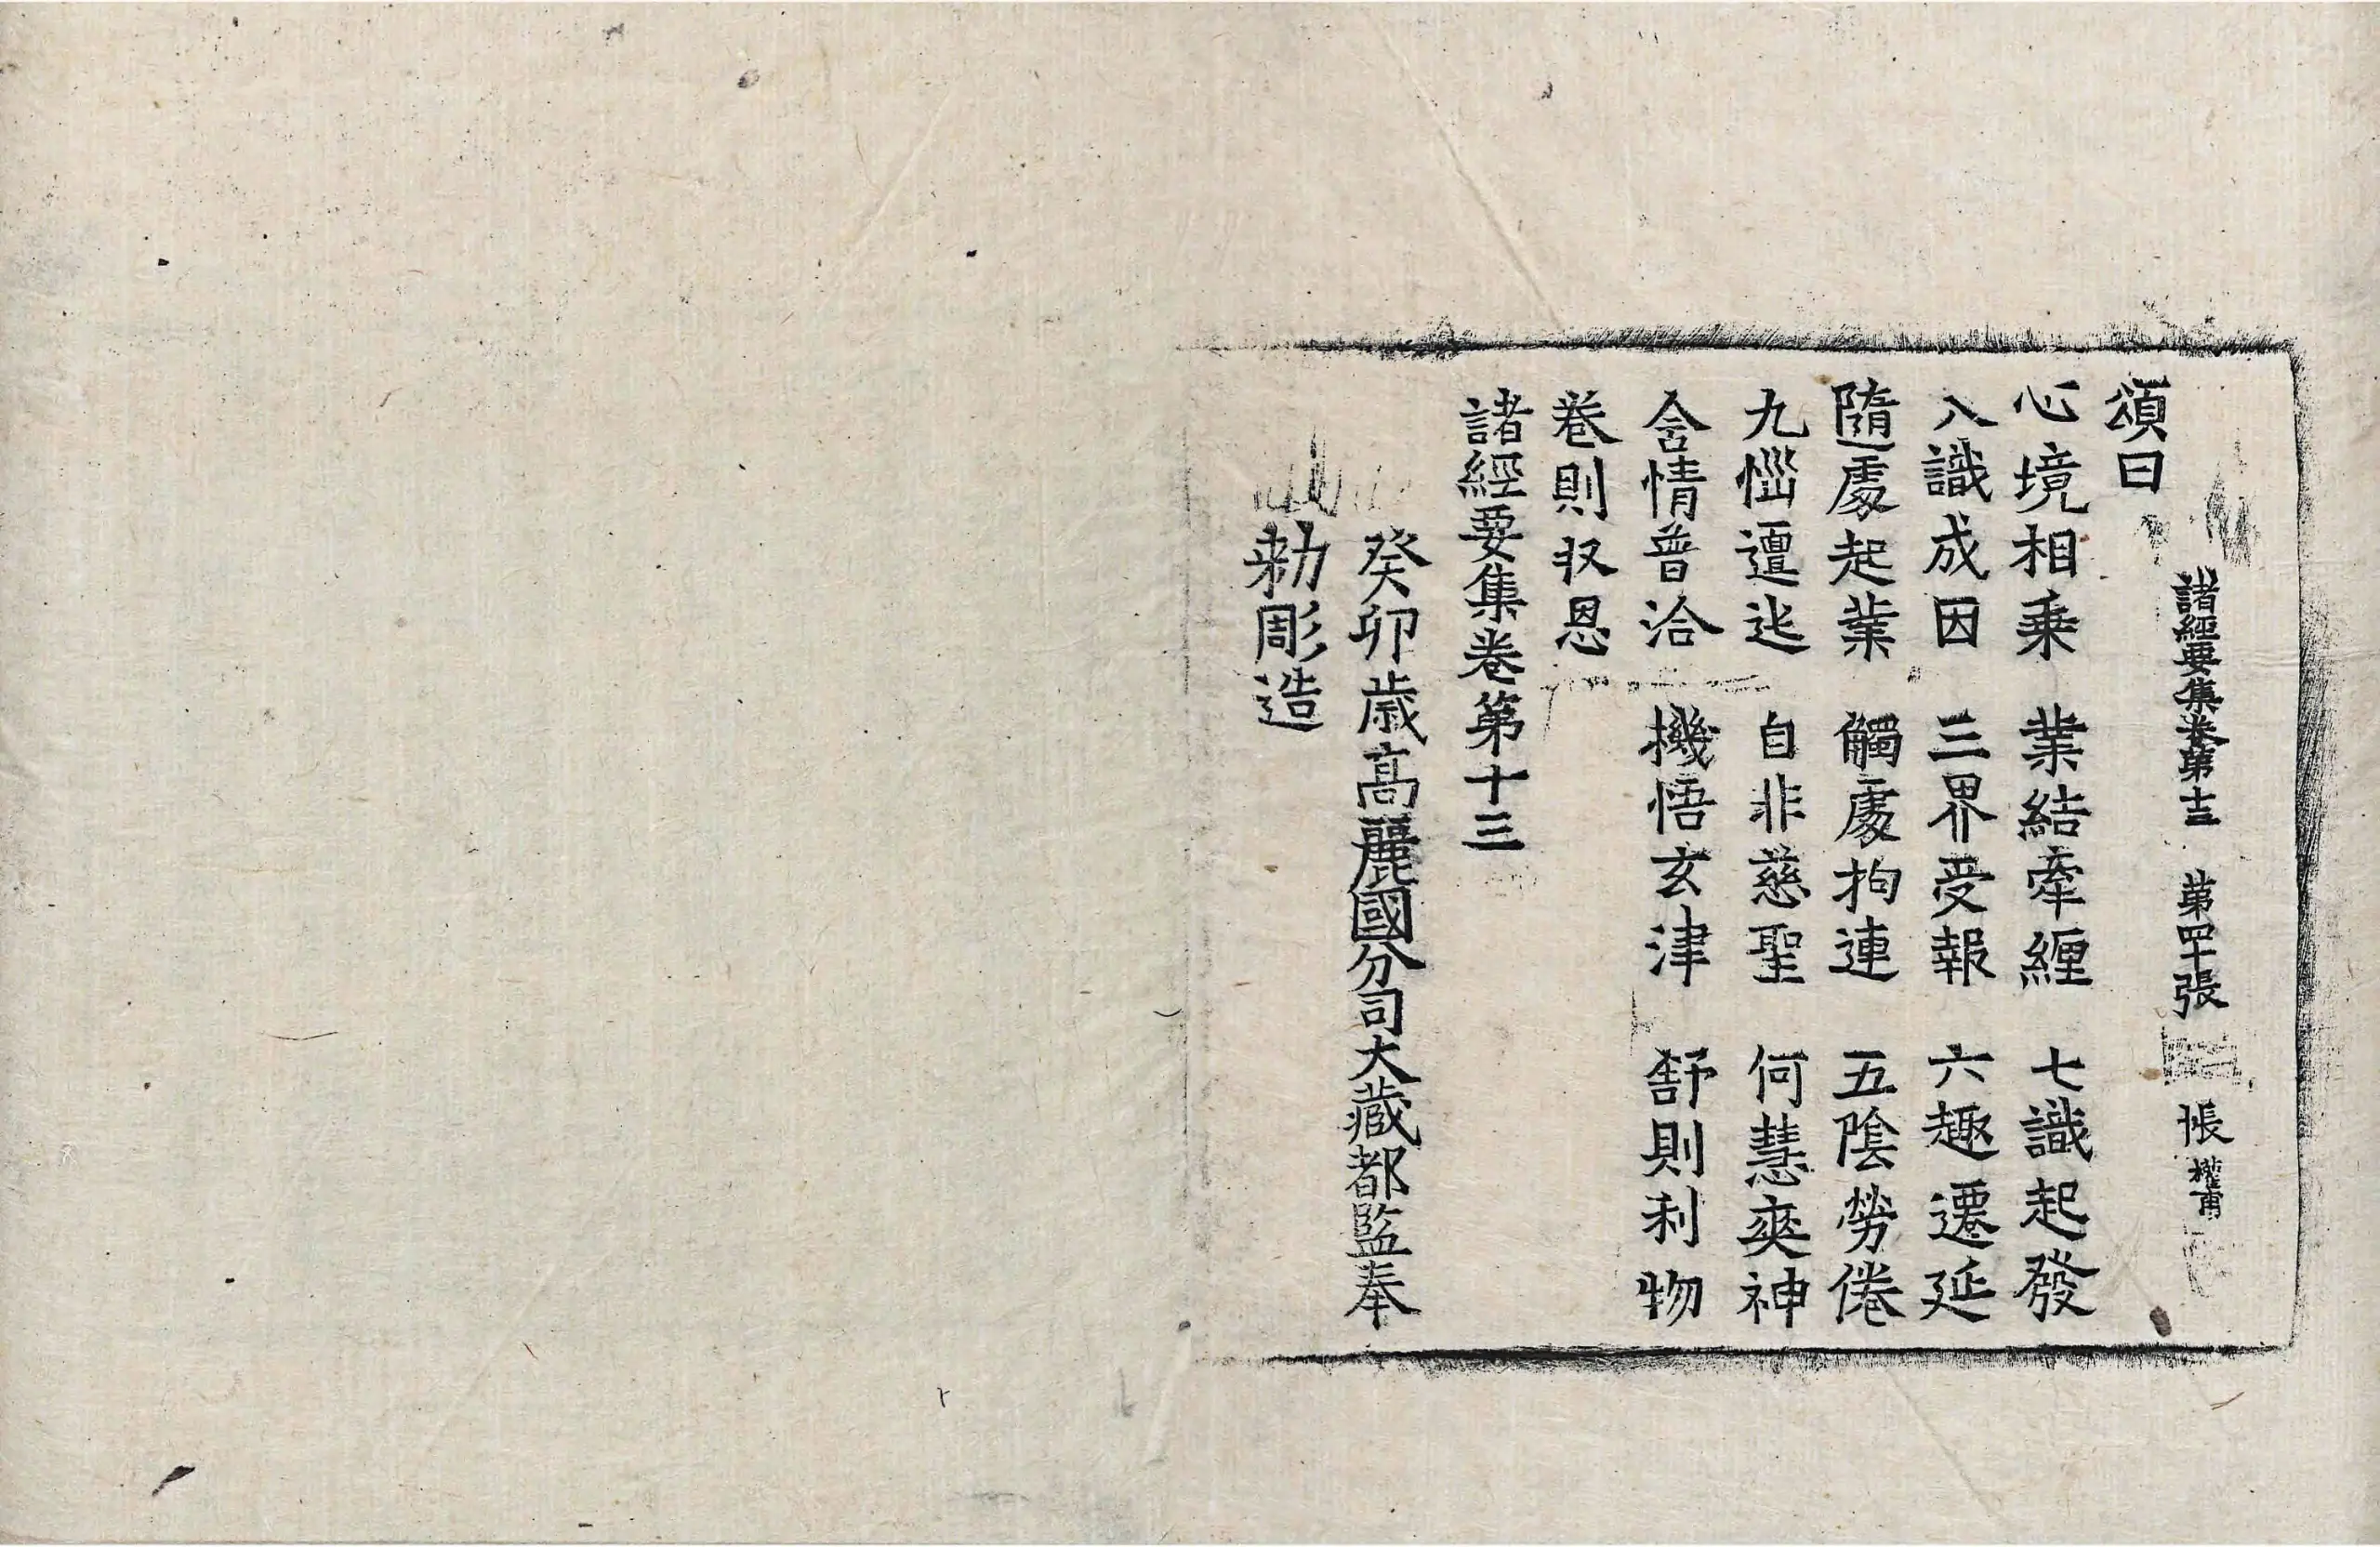 諸經要集卷第十三 第四十張 悵 權甫
頌曰
心境相乗 業結牽纒 七識起發
八識成因 三界受報 六趣遷延
隨處起業 觸處拘連 五陰勞倦
九惱邅迍 自非慈聖 何慧爽神
含情普洽 機悟玄津 舒則利物
卷則収恩
諸經要集卷第十三
癸卯歳高麗國分司大藏都監奉
勑彫造